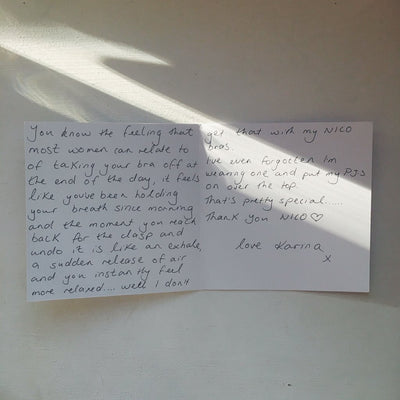 You know the feeling that
most women can relate to
of taking your bra off at
the end of the day, it feels
like you've been holding
your breath since morning
and the moment you reach
back for the clasp and
undo it is like an exhale,
a sudden release of air
and you instantly feel
more relaxed.... well I don't
get that with my NICO
bras.
I've even forgotten I'm
wearing one and put my PJs
on over the top.
That's pretty special.....
Thank you NICO♡
love Karina
x